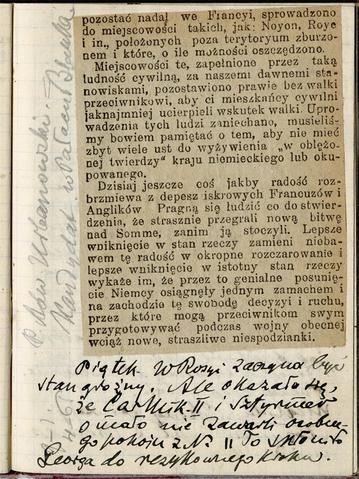 pozostać nadal we Francyi, sprowadzono
do miejscowości takich, jak: Noyon, Roye
i in., położonych poza terytoryum zburzo-
nem i które, o ile możności oszczędzono.
Miejscowości te, zapełnione przez taką
ludność cywilną, za naszemi dawnemi sta-
nowiskami, pozostawiono prawie bez walki
przeciwnikowi, aby ci mieszkańcy cywilni
jaknajmniej ucierpieli wskutek walki. Upro-
wadzenia tych ludzi zaniechano, musieliś-
my bowiem pamiętać o tem, aby nie mieć
zbyt wiele ust do wyżywienia „w oblężo-
nej twierdzy" kraju niemieckiego lub oku-
powanego.
Dzisiaj jeszcze coś jakby radość roz-
brzmiewa z depesz iskrowych Francuzów i
Anglików Pragną się ludzić co do stwier-
dzenia, że strasznie przegrali nową bitwę
nad Somme, zanim ją stoczyli. Lepsze
wniknięcie w stan rzeczy zamieni nieba-
wem tę radość w okropne rozczarowanie i
lepsze wniknięcie w istotny stan rzeczy
wykaże im, że przez to genialne posunię-
cie Niemcy osiągnęły jednym zamachem i
na zachodzie tę swobodę decyzyi i ruchu,
przez które mogą przeciwnikom swym
przygotowywać podczas wojny obecnej
wciąż nowe, straszliwe niespodzianki.
Piątek W Rosyi zaczyna być
stan groźny. Ale okazało się,
że Car Mik. II i Sztyrmer
o mało nie zawarli osobne-
go pokoju z N. II To skłoniło
do rezykownego kroku.